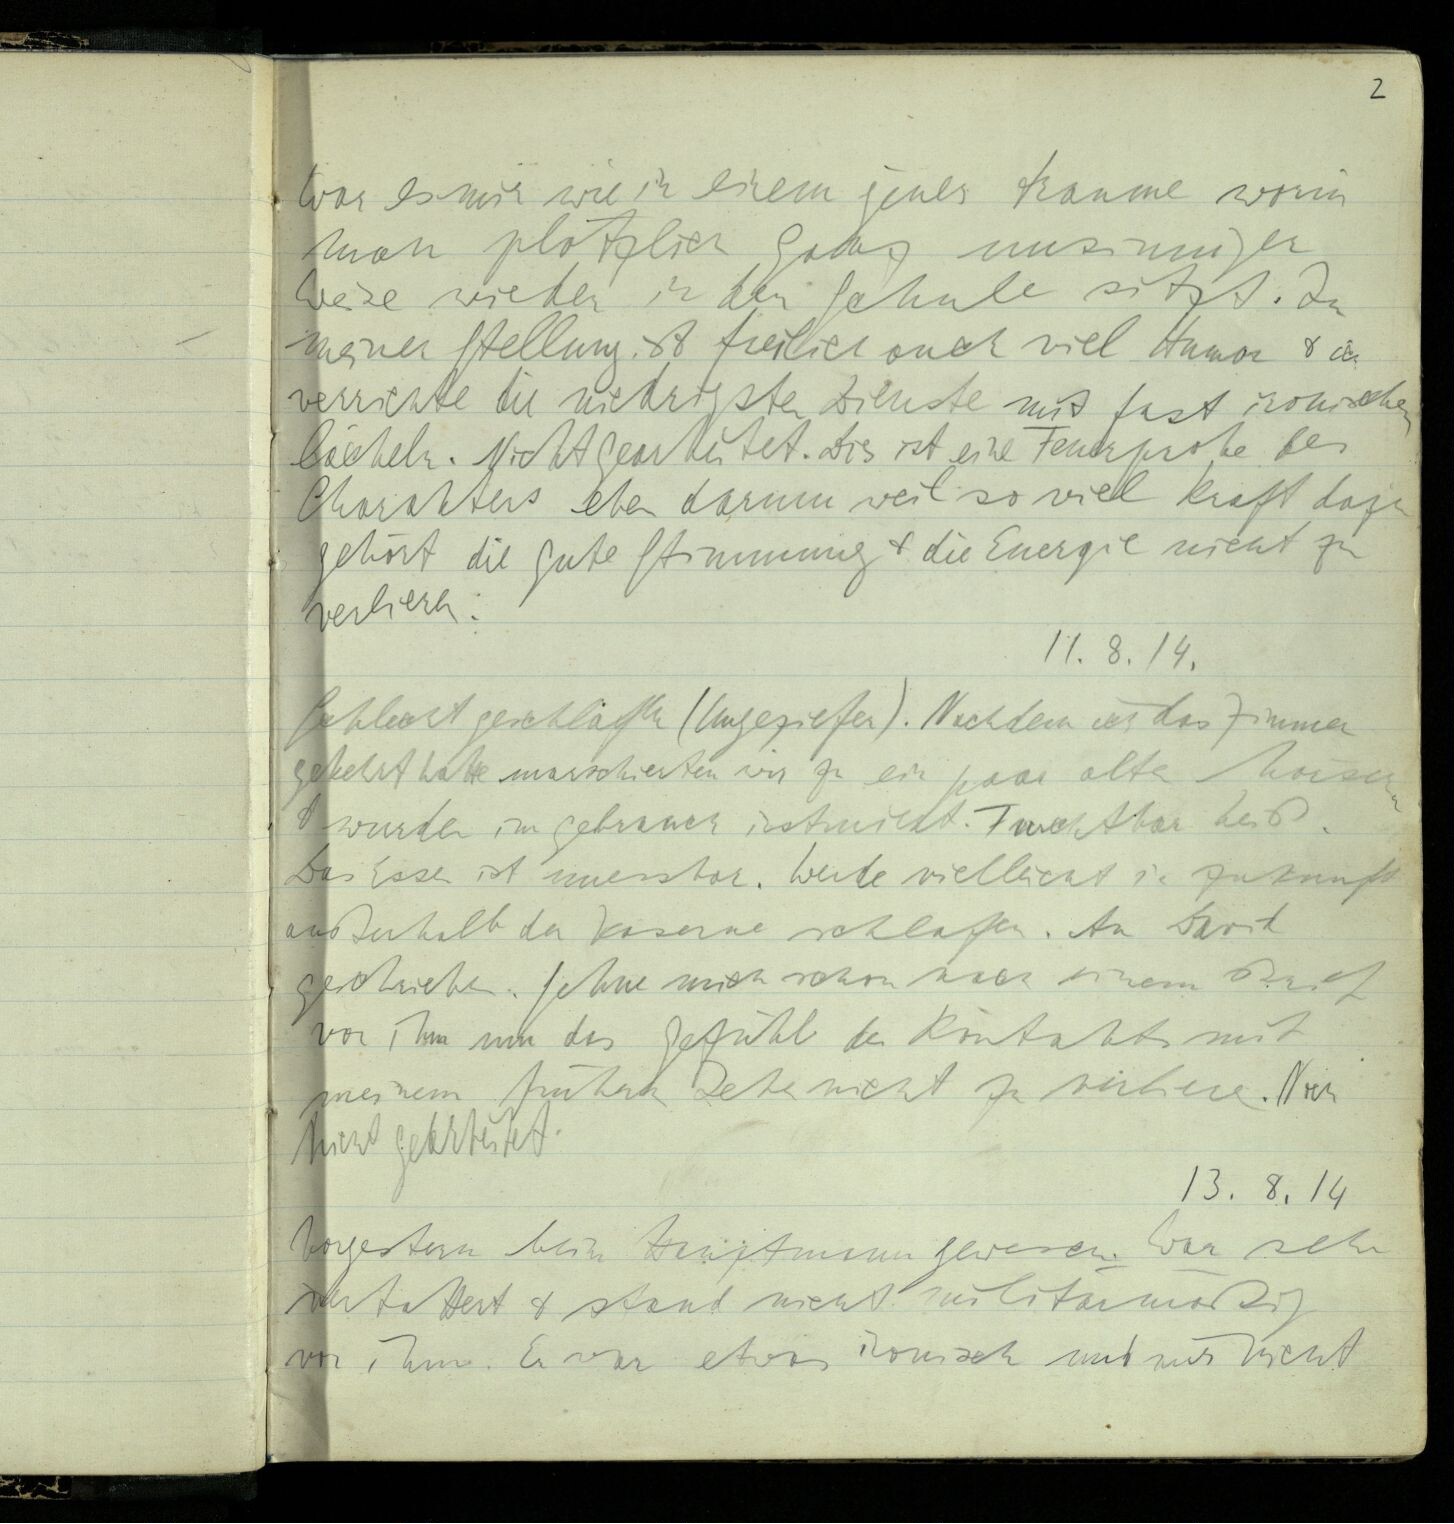 2
war es mir wie in einem jener Träume worin
man plötzlich ganz unsinniger
Weise wieder in der Schule sitzt. In
meiner Stellung ist freilich auch viel Humor & ich
verrichte die niedrigsten Dienste mit fast ironischem
Lächeln. Nicht gearbeitet. Dies ist eine Feuerprobe des
Charakters eben darum weil so viel Kraft dazu
gehört die gute Stimmung & die Energie nicht zu
verlieren.
11. 8. 14.
Schlecht geschlafen (Ungeziefer). Nachdem ich das Zimmer
gekehrt hatte marschierten wir zu ein paar alten Mörsern
& wurden im Gebrauch instruiert. Furchtbar heiß.
Das Essen ist unessbar. Werde vielleicht in Zukunft
außerhalb der Kaserne schlafen. An David
geschrieben. Sehne mich schon nach einem Brief
von ihm um das Gefühl des Kontakts mit
meinem frühern Leben nicht zu verlieren. Noch
nicht gearbeitet.
13. 8. 14
Vorgestern beim Hauptmann gewesen. War sehr
vertattert & stand nicht militärmäßig
vor ihm. Er war etwas ironisch und mir nicht